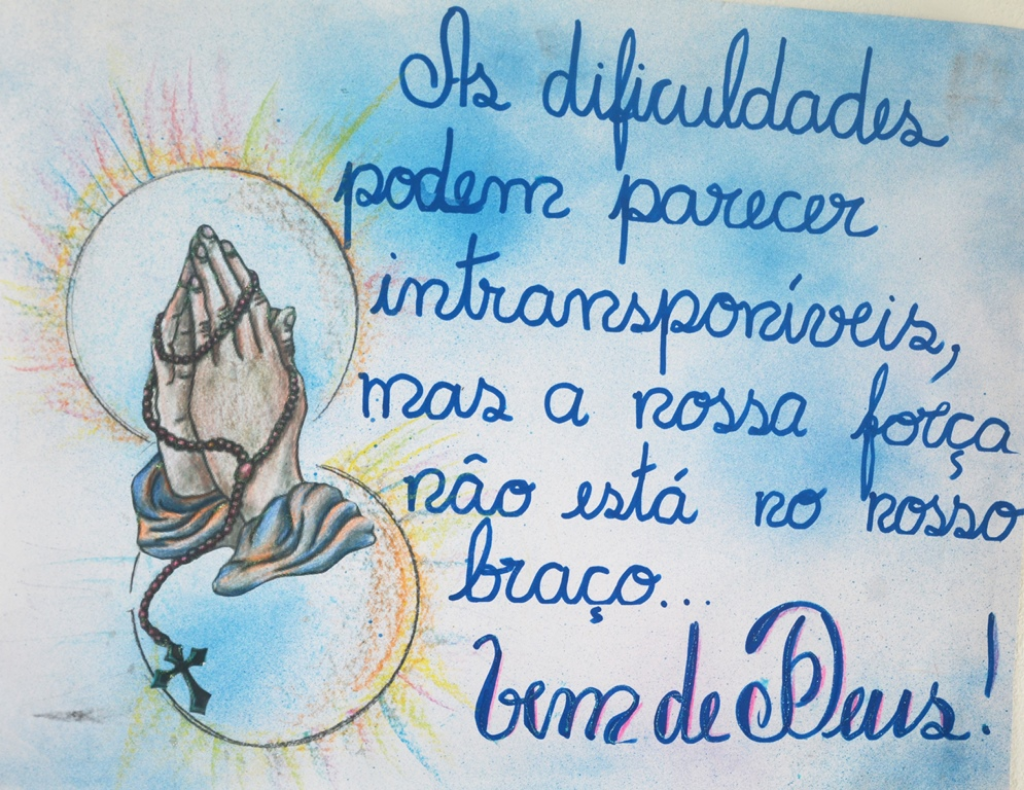 As dificuldades
podem parecer
intransponíveis,
mas a nossa força
não está no nosso
braço...
Vem de Deus!